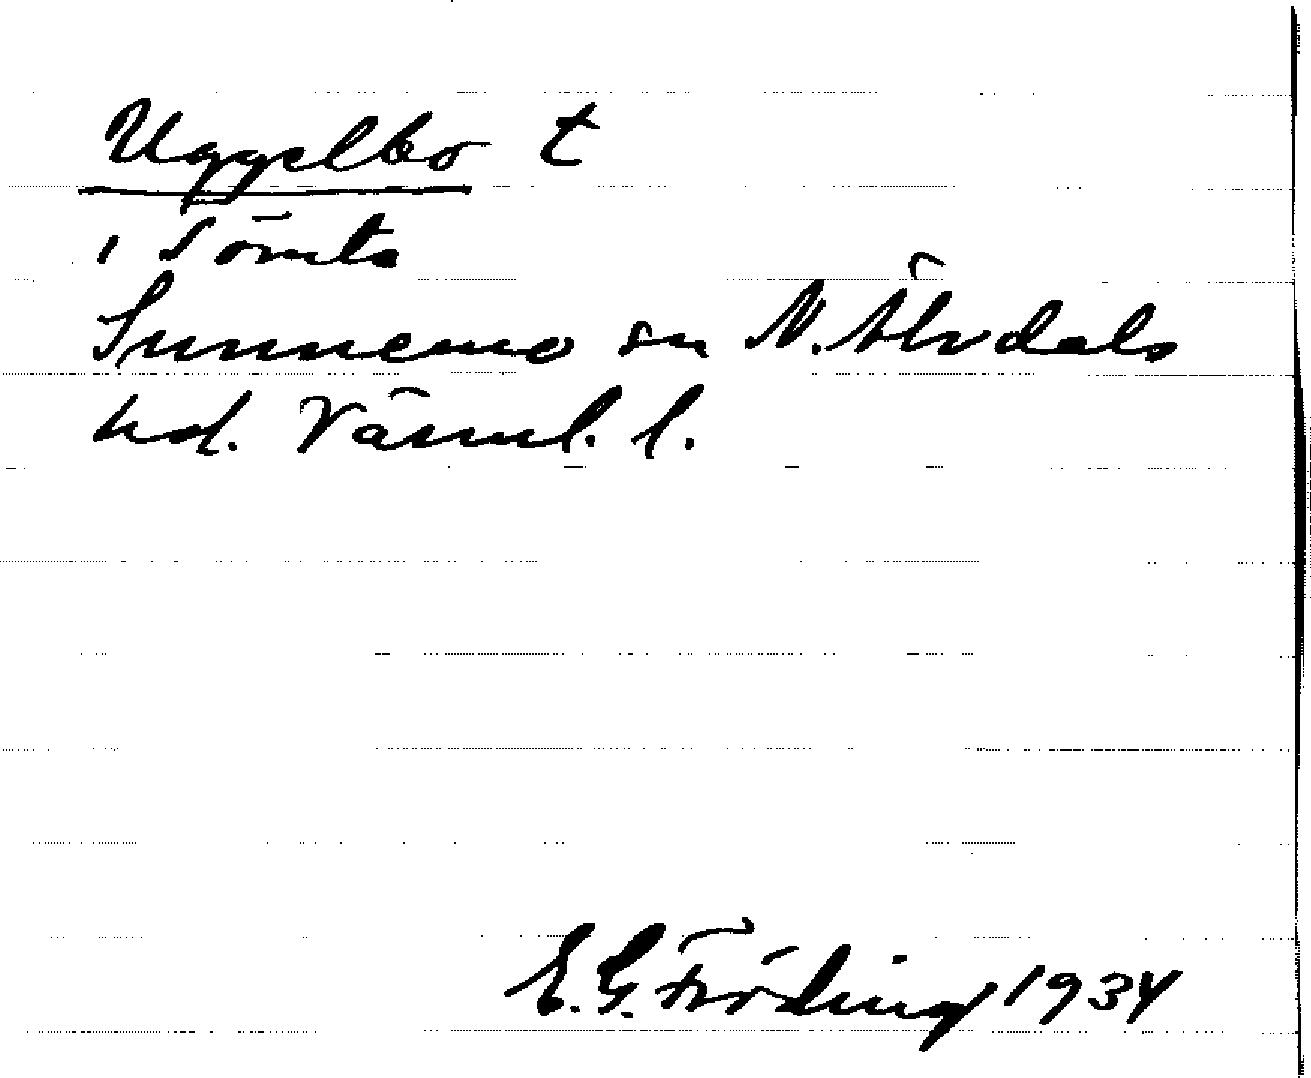 Uggelbo t
i Tömte
Sunnemo sn N. Älvdals
hd. Värml. l.
E. G. Fröding 1934